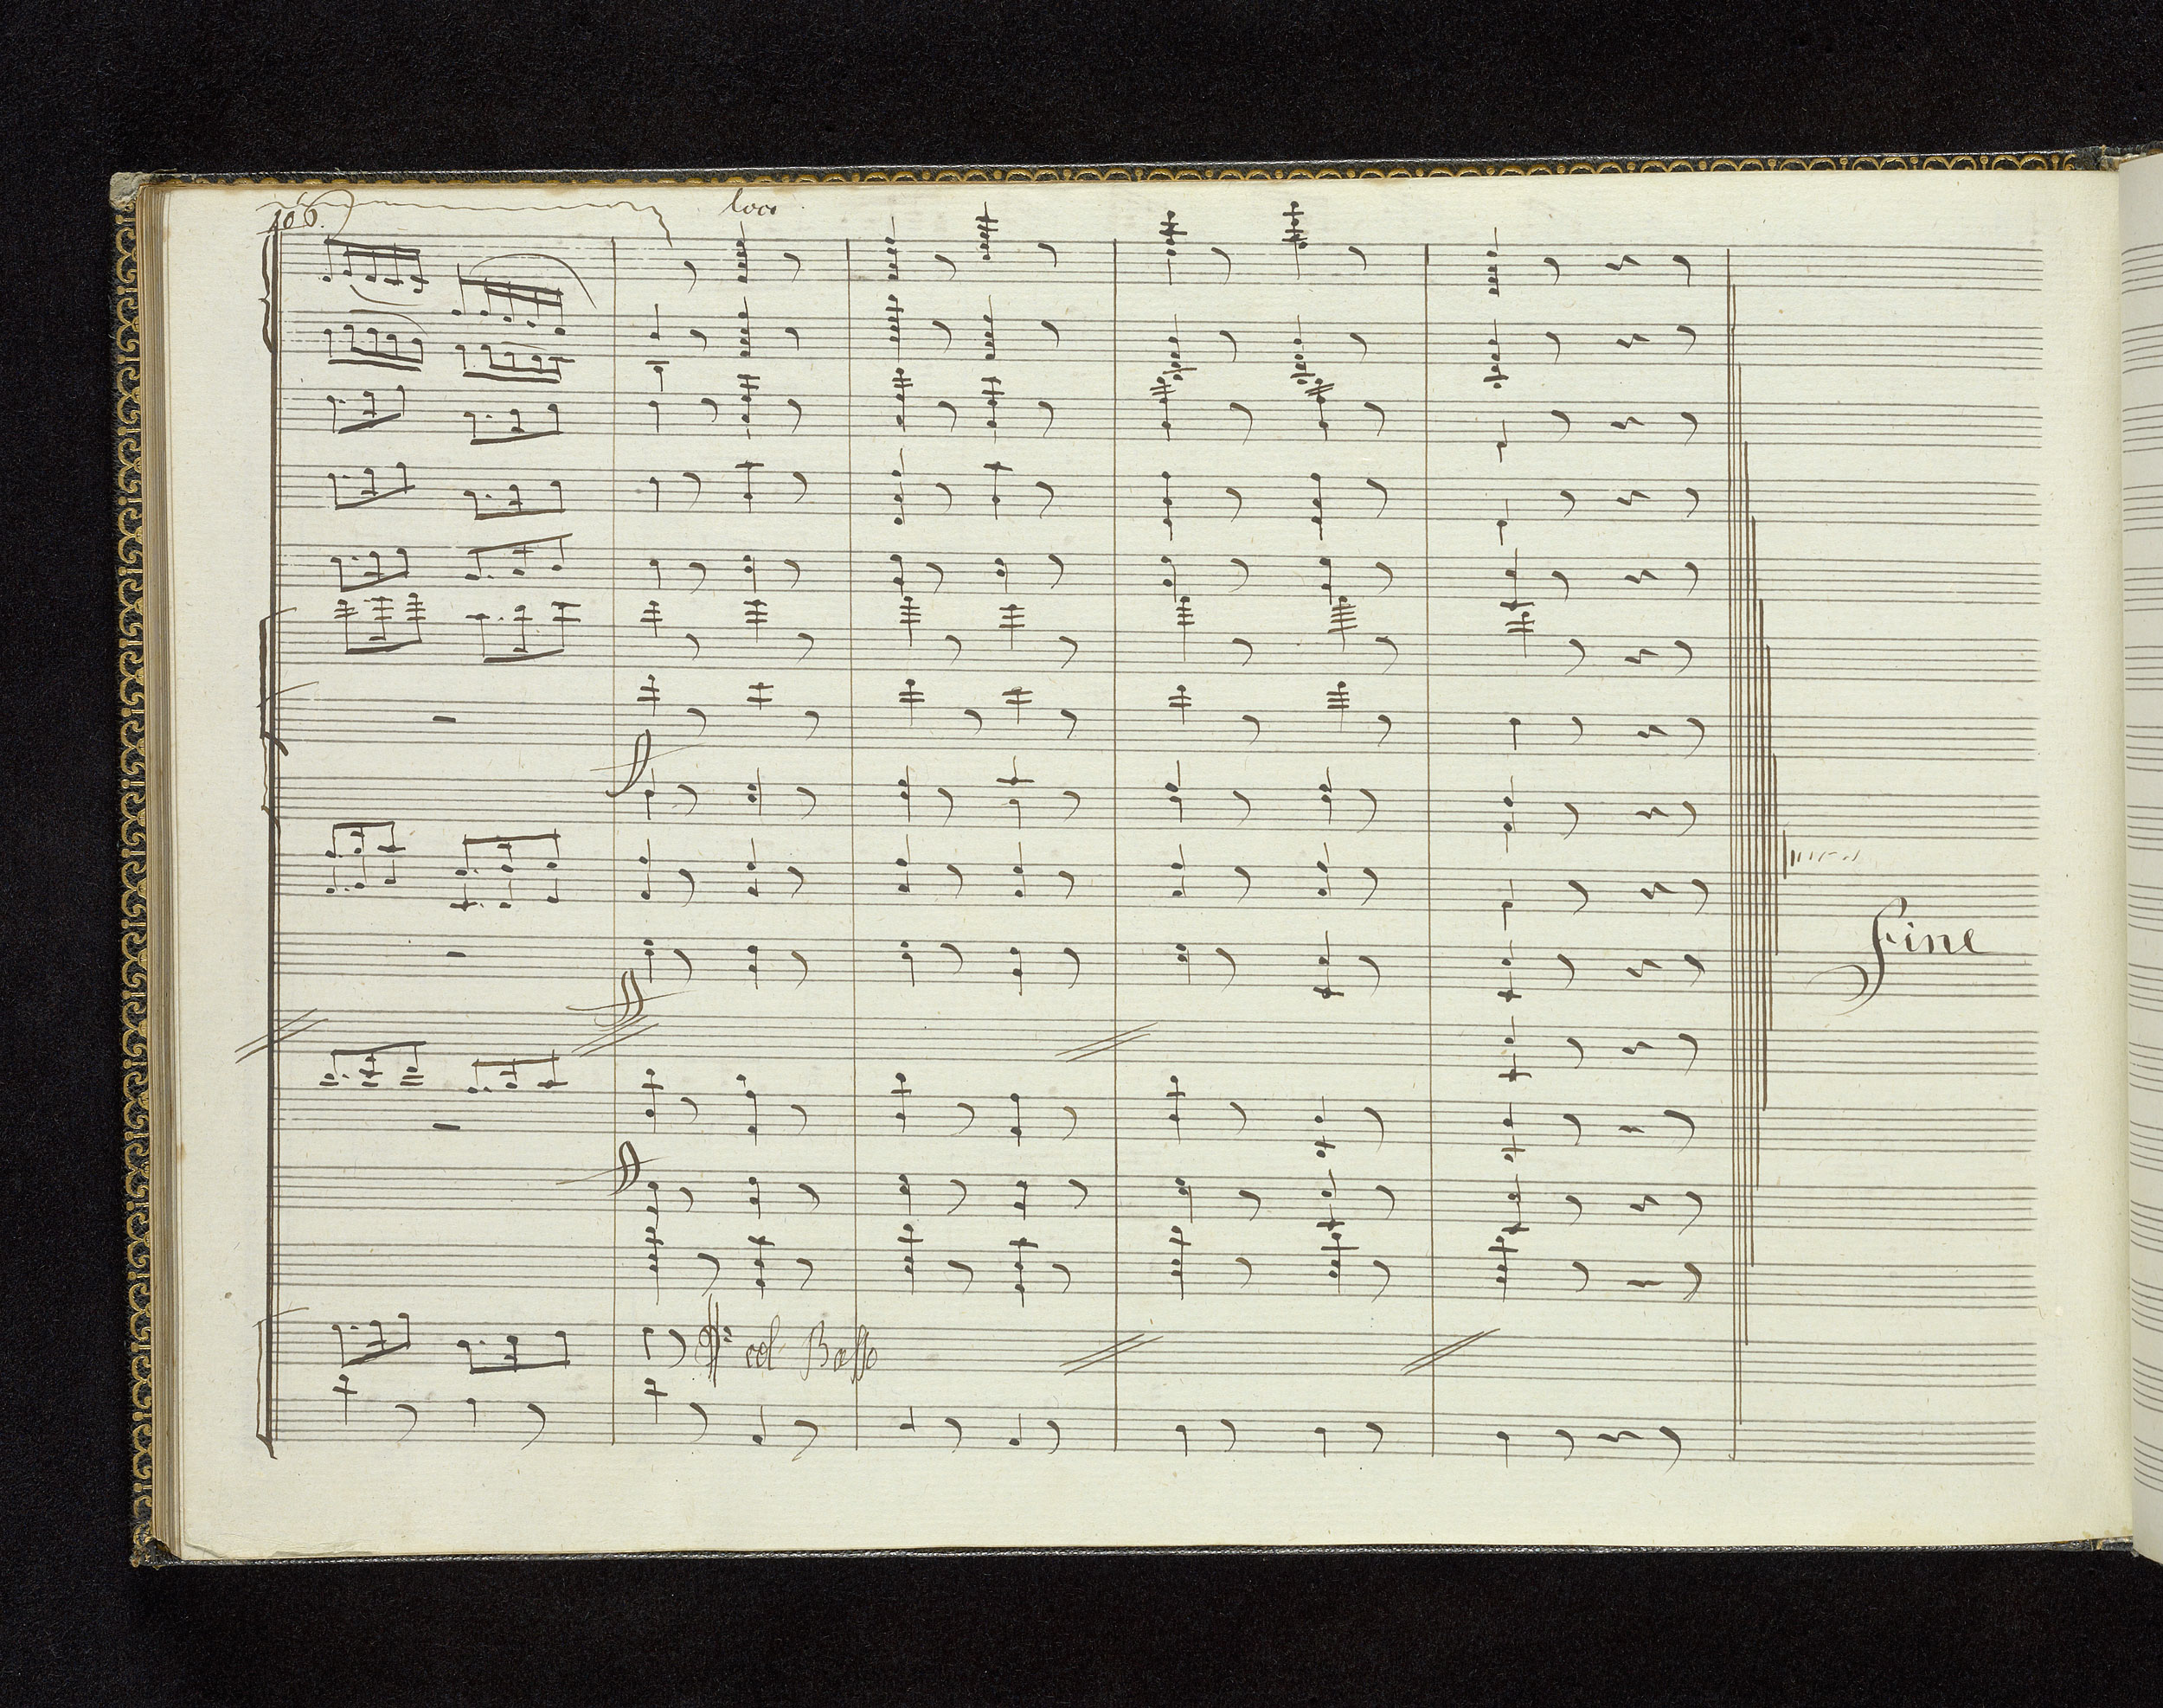 106.
loco
col Basso
Fine